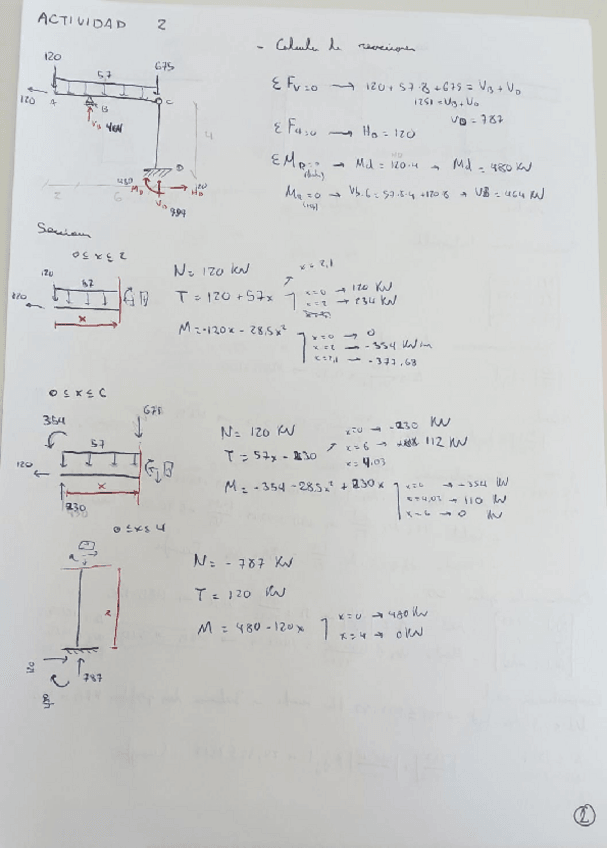 ACTIVIDAD 2
- Calculo de reacciones
120
57
675
120
A
B
C
VB 464
4
480
MD
D
HD
120
VD
2
6
ΣFV=0 → 120+57·8+675 = VB+VD
1251 = VB+VD
VD = 787
ΣFH=0 → HD = 120
ΣMD=0 → Md = 120·4 → Md = 480 KN
→ VB·6 = 57·8·4 + 120·8 → VB = 464 KN
Secciones
0 ≤ x ≤ 2
120
57
120
x
N = 120 KN
T = 120 + 57x
x = 2,1
x=0 → 120 KN
x=2 → 234 KN
M = -120x - 28,5x²
x=0 → 0
x=2 → -354 KN m
x=2,1 → -377,68
0 ≤ x ≤ 6
354
675
57
120
x
230
N = 120 KN
T = 57x - 230
x=0 → -230 KN
x=6 → 112 KN
x = 4,03
M = -354 - 28,5x² + 230x
x=0 → -354 KN
x=4,03 → 110 KN
x=6 → 0 KN
0 ≤ x ≤ 4
x
787
N = - 787 KN
T = 120 KN
M = 480 - 120x
x=0 → 480 KN
x=4 → 0 KN
2